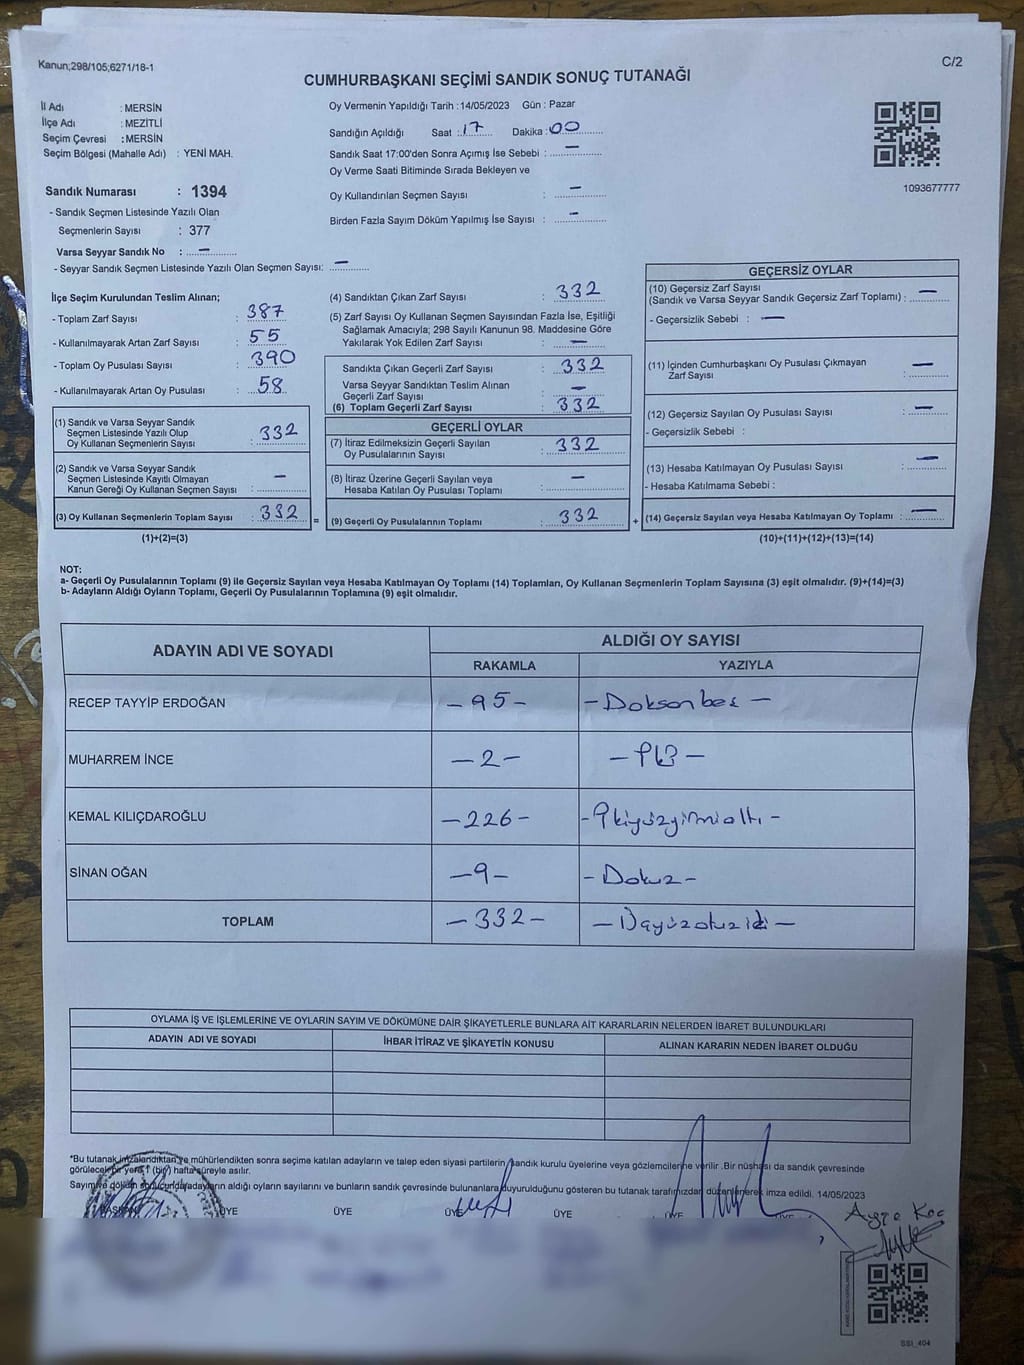 Kanun;298/105;6271/18-1
C/2
CUMHURBAŞKANI SEÇİMİ SANDIK SONUÇ TUTANAĞI
İl Adı : MERSİN
İlçe Adı : MEZİTLİ
Seçim Çevresi : MERSİN
Seçim Bölgesi (Mahalle Adı) : YENİ MAH.
Sandık Numarası : 1394
- Sandık Seçmen Listesinde Yazılı Olan
Seçmenlerin Sayısı : 377
Varsa Seyyar Sandık No : —
- Seyyar Sandık Seçmen Listesinde Yazılı Olan Seçmen Sayısı: —
Oy Vermenin Yapıldığı Tarih :14/05/2023 Gün : Pazar
Sandığın Açıldığı Saat : 17 Dakika : 00
Sandık Saat 17:00'den Sonra Açımış İse Sebebi : —
Oy Verme Saati Bitiminde Sırada Bekleyen ve
Oy Kullandırılan Seçmen Sayısı : —
Birden Fazla Sayım Döküm Yapılmış İse Sayısı : —
1093677777
İlçe Seçim Kurulundan Teslim Alınan;
- Toplam Zarf Sayısı : 387
- Kullanılmayarak Artan Zarf Sayısı : 55
- Toplam Oy Pusulası Sayısı : 390
- Kullanılmayarak Artan Oy Pusulası : 58
(1) Sandık ve Varsa Seyyar Sandık
Seçmen Listesinde Yazılı Olup
Oy Kullanan Seçmenlerin Sayısı : 332
(2) Sandık ve Varsa Seyyar Sandık
Seçmen Listesinde Kayıtlı Olmayan
Kanun Gereği Oy Kullanan Seçmen Sayısı : —
(3) Oy Kullanan Seçmenlerin Toplam Sayısı : 332
(1)+(2)=(3)
=
(4) Sandıktan Çıkan Zarf Sayısı : 332
(5) Zarf Sayısı Oy Kullanan Seçmen Sayısından Fazla İse, Eşitliği
Sağlamak Amacıyla; 298 Sayılı Kanunun 98. Maddesine Göre
Yakılarak Yok Edilen Zarf Sayısı : —
Sandıkta Çıkan Geçerli Zarf Sayısı : 332
Varsa Seyyar Sandıktan Teslim Alınan
Geçerli Zarf Sayısı : —
(6) Toplam Geçerli Zarf Sayısı : 332
GEÇERLİ OYLAR
(7) İtiraz Edilmeksizin Geçerli Sayılan
Oy Pusulalarının Sayısı : 332
(8) İtiraz Üzerine Geçerli Sayılan veya
Hesaba Katılan Oy Pusulası Toplamı : —
(9) Geçerli Oy Pusulalarının Toplamı : 332
+
GEÇERSİZ OYLAR
(10) Geçersiz Zarf Sayısı
(Sandık ve Varsa Seyyar Sandık Geçersiz Zarf Toplamı) : —
- Geçersizlik Sebebi : —
(11) İçinden Cumhurbaşkanı Oy Pusulası Çıkmayan
Zarf Sayısı : —
(12) Geçersiz Sayılan Oy Pusulası Sayısı : —
- Geçersizlik Sebebi :
(13) Hesaba Katılmayan Oy Pusulası Sayısı : —
- Hesaba Katılmama Sebebi :
(14) Geçersiz Sayılan veya Hesaba Katılmayan Oy Toplamı : —
(10)+(11)+(12)+(13)=(14)
NOT:
a- Geçerli Oy Pusulalarının Toplamı (9) ile Geçersiz Sayılan veya Hesaba Katılmayan Oy Toplamı (14) Toplamları, Oy Kullanan Seçmenlerin Toplam Sayısına (3) eşit olmalıdır. (9)+(14)=(3)
b- Adayların Aldığı Oyların Toplamı, Geçerli Oy Pusulalarının Toplamına (9) eşit olmalıdır.
ADAYIN ADI VE SOYADI ALDIĞI OY SAYISI
RAKAMLA YAZIYLA
RECEP TAYYİP ERDOĞAN -95- -Doksanbeş-
MUHARREM İNCE -2- -İki-
KEMAL KILIÇDAROĞLU -226- -İkiyüzyirmialtı-
SİNAN OĞAN -9- -Dokuz-
TOPLAM -332- -Üçyüzotuziki-
OYLAMA İŞ VE İŞLEMLERİNE VE OYLARIN SAYIM VE DÖKÜMÜNE DAİR ŞİKAYETLERLE BUNLARA AİT KARARLARIN NELERDEN İBARET BULUNDUKLARI
ADAYIN ADI VE SOYADI İHBAR İTİRAZ VE ŞİKAYETİN KONUSU ALINAN KARARIN NEDEN İBARET OLDUĞU
*Bu tutanak imzalandıktan ve mühürlendikten sonra seçime katılan adayların ve talep eden siyasi partilerin sandık kurulu üyelerine veya gözlemcilerine verilir .Bir nüshası da sandık çevresinde
görülecek bir yere 1 (bir) hafta süreyle asılır.
Sayım ve döküm sonucunda adayların aldığı oyların sayılarını ve bunların sandık çevresinde bulunanlara duyurulduğunu gösteren bu tutanak tarafımızdan düzenlenerek imza edildi. 14/05/2023
BAŞKAN ÜYE ÜYE ÜYE ÜYE ÜYE
Ayşe Koç
SSİ_404